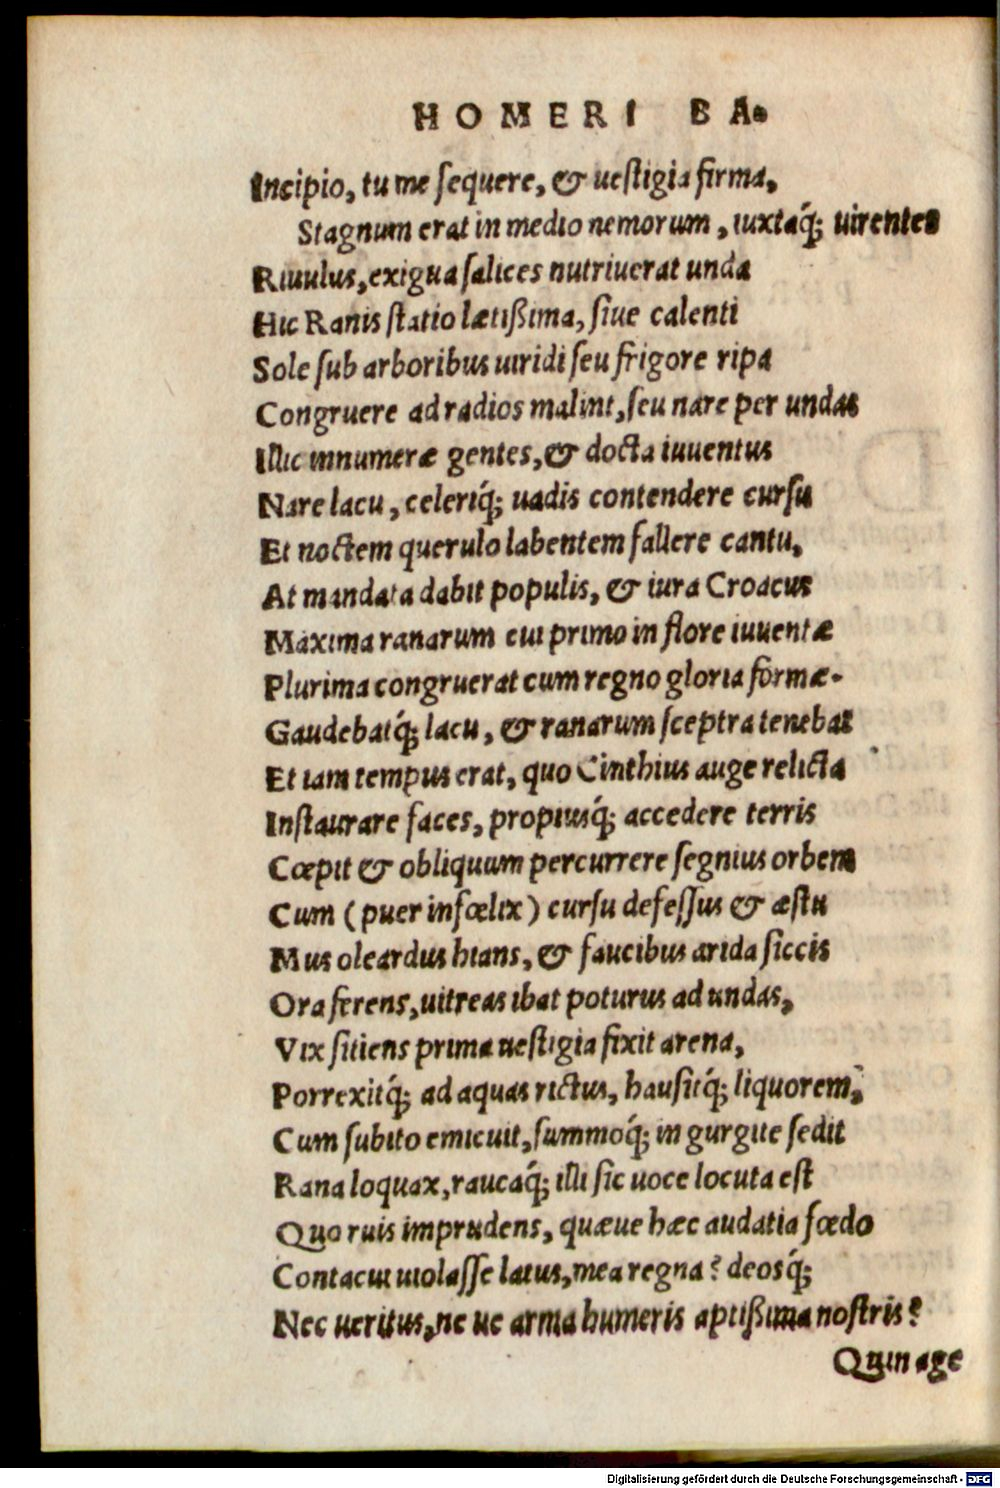 HOMERI BA.
Incipio, tu me sequere, & uestigia firma,
Stagnum erat in medio nemorum, iuxtaq́; uirentes
Riuulus, exigua salices nutriuerat unda
Hic Ranis statio lætißima, siue calenti
Sole sub arboribus uiridi seu frigore ripa
Congruere ad radios malint, seu nare per undas
Illic innumeræ gentes, & docta iuuentus
Nare lacu, celeriq́; uadis contendere cursu
Et noctem querulo labentem fallere cantu,
At mandata dabit populis, & iura Croacus
Maxima ranarum cui primo in flore iuuentæ
Plurima congruerat cum regno gloria formæ.
Gaudebatq́; lacu, & ranarum sceptra tenebat
Et iam tempus erat, quo Cinthius auge relicta
Instaurare faces, propiusq́; accedere terris
Cœpit & obliquum percurrere segnius orbem
Cum (puer infœlix) cursu defessus & æstu
Mus oleardus hians, & faucibus arida siccis
Ora ferens, uitreas ibat poturus ad undas,
Vix sitiens prima uestigia fixit arena,
Porrexitq́; ad aquas rictus, hausitq́; liquorem,
Cum subito emicuit, summoq́; in gurgite sedit
Rana loquax, raucaq́; illi sic uoce locuta est
Quo ruis imprudens, quæue hæc audatia fœdo
Contactu uiolasse latus, mea regna? deosq́;
Nec ueritus, ne ue arma humeris aptißima nostris?
Quin age
Digitalisierung gefördert durch die Deutsche Forschungsgemeinschaft - DFG